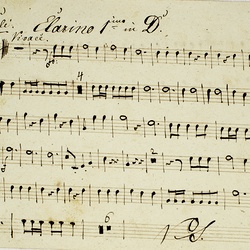 Clarino 1mo in D.
Vivace.
4
2
6